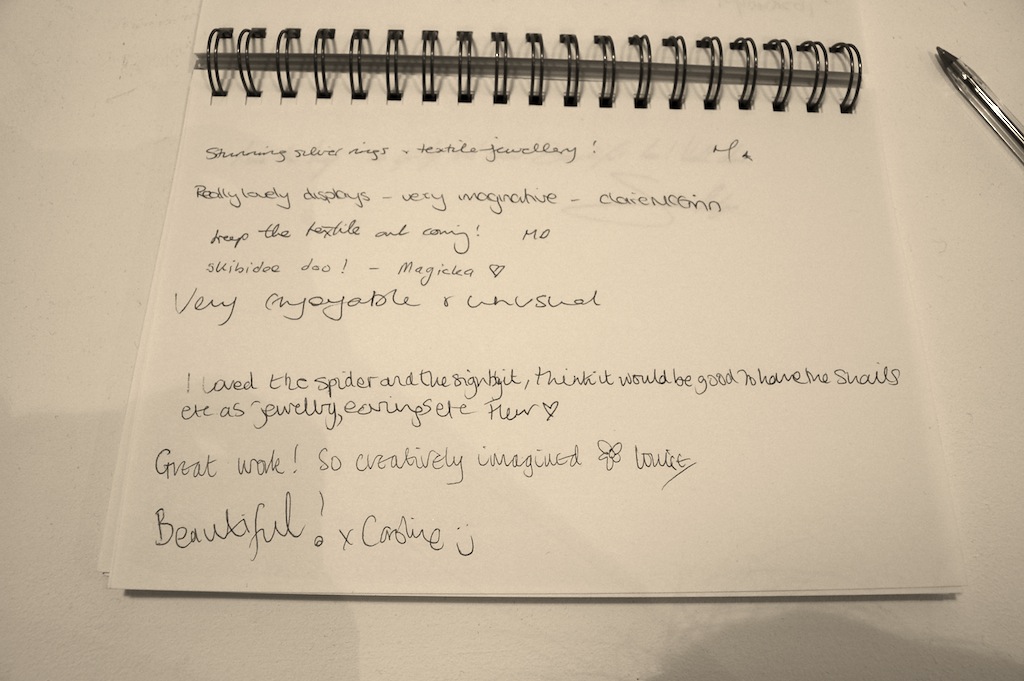 Stunning silver rings + textile jewellery!
Really lovely displays - very imaginative - Claire McGinn
keep the textile art coming! MD
skibidee doo! - Magicka ♡
Very enjoyable & unusual
I loved the spider and the sign by it, think it would be good to have the snails
etc as jewellry, earings etc Fleur ♡
Great work! So creatively imagined Louise
Beautiful! x Caroline :)